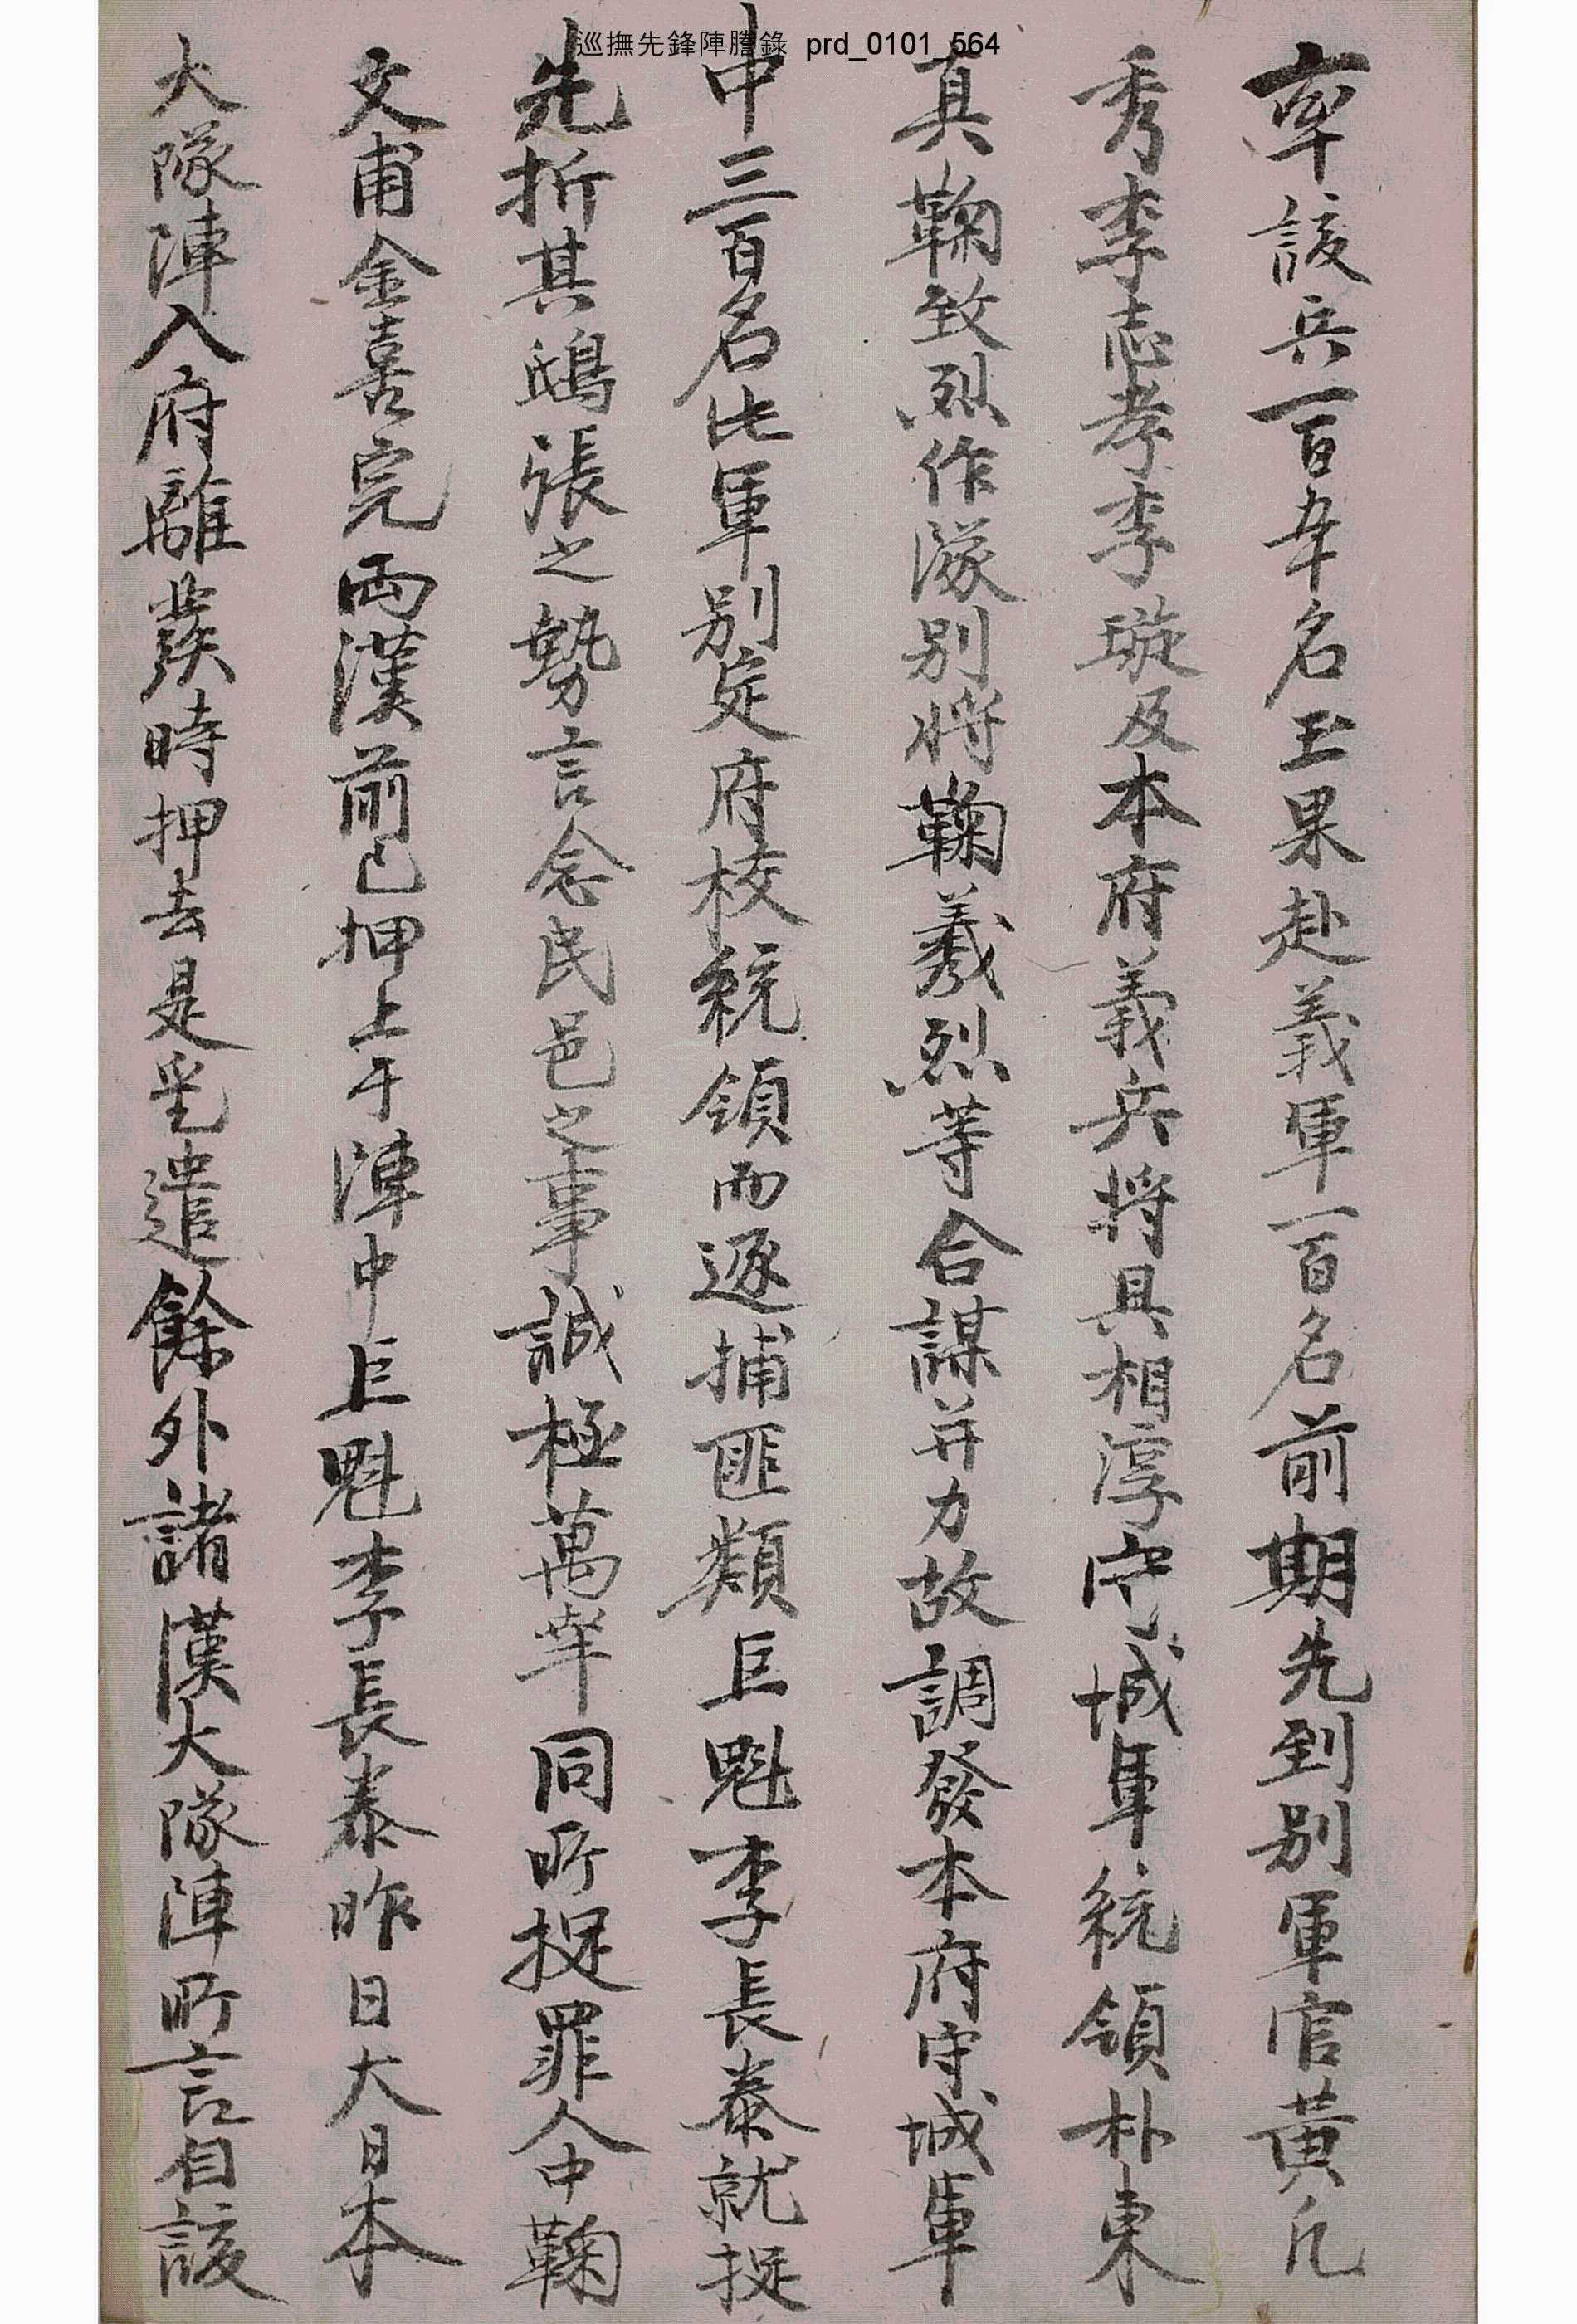 巡撫先鋒陣謄錄 prd_0101_564
率該兵一百五十名玉果赴義軍一百名前期先到別軍官黃凡
秀李志孝李璇及本府義兵將具相淳守城軍統領朴東
真鞠致烈作隊別將鞠羲烈等合謀并力故調發本府守城軍
中三百名比軍別定府校統領而逐捕匪類巨魁李長泰就捉
先折其鴟張之勢言念民邑之事誠極萬幸同所捉罪人中鞠
文甫金喜完両漢前已押上于陣中巨魁李長泰昨日大日本
大隊陣入府離發時押去是乎遣餘外諸漢大隊陣所言自該